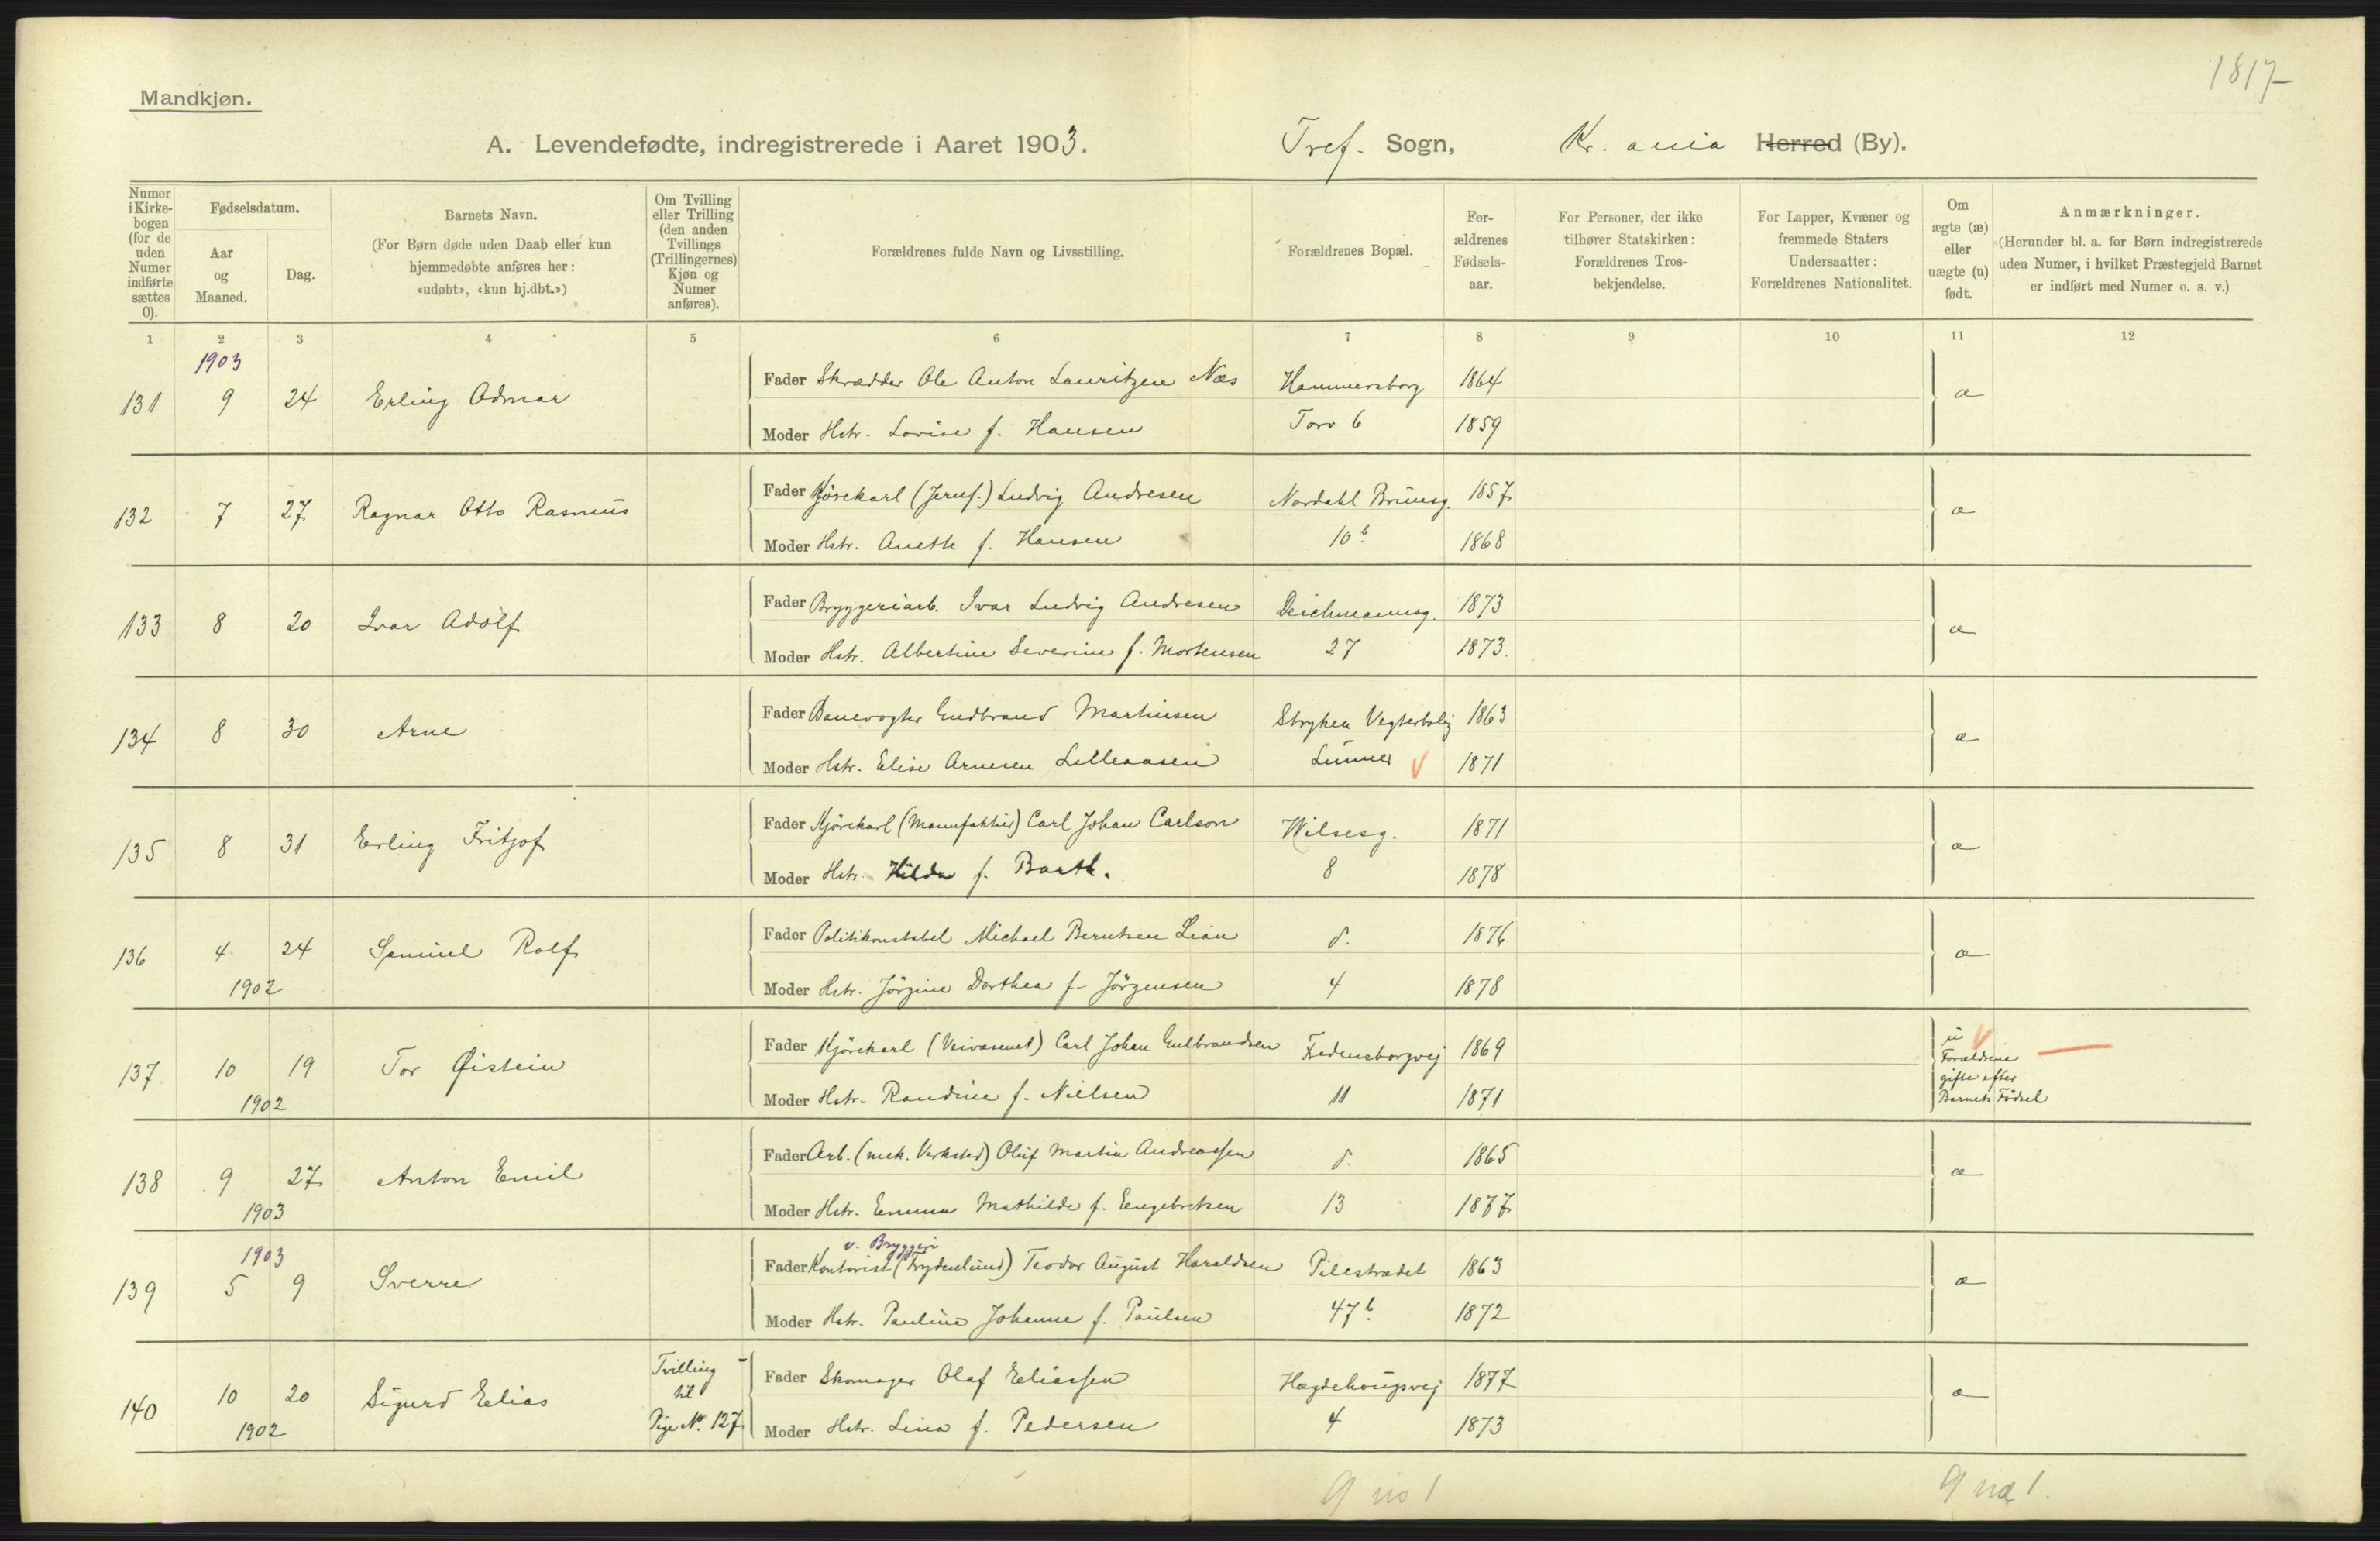 1817
Mandkjøn.
A. Levendefødte, indregistrerede i Aaret 1903.
Tref. Sogn,
Kr. ania Herred (By).
Numer i Kirkebogen (for de uden Numer indførte sættes 0).
Fødselsdatum.
Aar og Maaned.
Dag.
Barnets Navn.
(For Børn døde uden Daab eller kun hjemmedøbte anføres her: «udøbt», «kun hj.dbt.»)
Om Tvilling eller Trilling (den anden Tvillings (Trillingernes) Kjøn og Numer anføres).
Forældrenes fulde Navn og Livsstilling.
Forældrenes Bopæl.
Forældrenes Fødselsaar.
For Personer, der ikke tilhører Statskirken: Forældrenes Trosbekjendelse.
For Lapper, Kvæner og fremmede Staters Undersaatter: Forældrenes Nationalitet.
Om ægte (æ) eller uægte (u) født.
Anmærkninger.
(Herunder bl. a. for Børn indregistrerede uden Numer, i hvilket Præstegjeld Barnet er indført med Numer o. s. v.)
1 2 3 4 5 6 7 8 9 10 11 12
1903
131 9 24 Erling Admar
Fader Skrædder Ole Anton Lauritzen Næs Hammersborg 1864 æ
Moder Hstr. Lovise f. Hansen Torv 6 1859
132 7 27 Ragnar Otto Rasmus
Fader Kjørekarl (Jernf.) Ludvig Andresen Nordahl Brunsg. 1857 æ
Moder Hstr. Anette f. Hansen 10b. 1868
133 8 20 Ivar Adolf
Fader Bryggeriarb. Ivar Ludvig Andresen Deichmannsg. 1873 æ
Moder Hstr. Albertine Severine f. Mortensen 27 1873.
134 8 30 Arne
Fader Banevogter Gudbrand Martinsen Stryken Vogterbolig 1863 æ
Moder Hstr. Elise Arnesen Lilleaasen Lunner V 1871
135 8 31 Erling Fritjof
Fader Kjørekarl (Manufaktur) Carl Johan Carlson Wilsesg. 1871 æ
Moder Hstr. Hilda f. Barth. 8 1878
136 4 24 Samuel Rolf
Fader Politikonstabel Michael Berntsen Lian d. 1876 æ
Moder Hstr. Jörgine Dorthea f. Jörgensen 4 1878
1902
137 10 19 Tor Øistein
Fader Kjørekarl (Veivæsenet) Carl Johan Gulbrandsen Fredensborgvej 1869 u V
Forældrene gifte efter Barnets Födsel
Moder Hstr. Randine f. Nielsen 11 1871
1902
138 9 27 Anton Emil
Fader Arb. (mek. Verksted) Oluf Martin Andreassen d. 1865 æ
Moder Hstr. Emma Mathilde f. Engebretsen 13 1877
1903
1903
139 5 9 Sverre
v. Bryggeri
Fader Kontorist (Frydenlund) Teodor August Haraldsen Pilestrædet 1863 æ
Moder Hstr. Pauline Johanne f. Paulsen 47b. 1872
140 10 20 Sigurd Elias Tvilling til Pige No. 127
Fader Skomager Olaf Eliassen Hægdehougsvej 1877 æ
Moder Hstr. Lina f. Pedersen 4 1873
1902